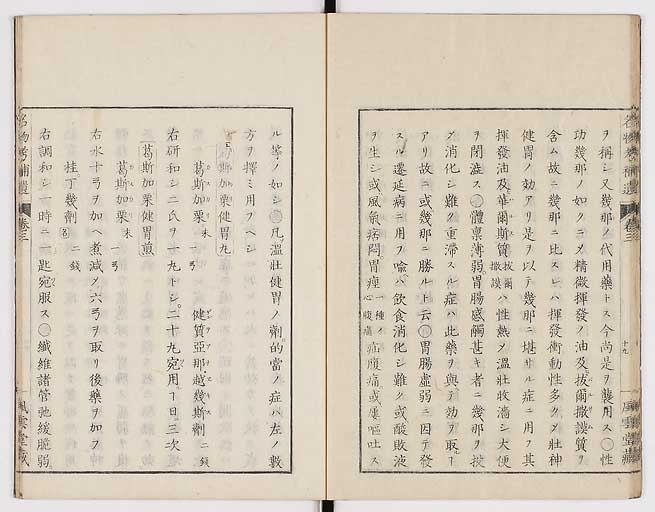 名物考補遺 卷三 十九 風雲堂藏
ヲ稱シ又幾那ノ代用藥トス今尚是ヲ襲用ス○性
功幾那ノ如クニメ精微揮發ノ油及拔爾撒謨質ヲ
含ム故ニ幾那ニ比スレハ揮發衝動性多クメ壯神
健胃ノ効アリ是ヲ以テ幾那ニ堪サル症ニ用フ其
揮發油及華爾斯質拔爾撒謨ハ性熱メ溫壯收濇シ大便
ヲ閉澁ス○體稟薄弱胃腸感觸甚キ者ニ幾那ヲ
メ消化シ難ク重滯スル症ハ此藥ヲ與テ効ヲ取ル
アリ故ニ或幾那ニ勝ルト云○胃腸虛弱ニ因テ發
スル遷延病ニ用フ喩ハ飲食消化シ難ク或酸敗液
ヲ生シ或風氣痞悶胃痙一種ノ心腹痛疝腹痛或屢嘔吐ス
ル等ノ如シ○凡溫壯健胃ノ劑的當ノ症ハ左ノ數
方ヲ擇ミ用フヘシ
葛斯加栗健胃丸
葛斯加栗末 一弓 健質亞那越幾斯劑 二錢
右研和シ二氏ヲ一丸トシ二十丸宛用一日三次
葛斯加栗健胃煎
葛斯加栗末 一弓
右水十弓ヲ加ヘ煮減メ六弓ヲ取リ後藥ヲ加フ
桂丁幾劑 二錢
右調和シ一時ニ一匙宛服ス○纖維諸管弛緩脆弱
名物考補遺 卷三 風雲堂藏